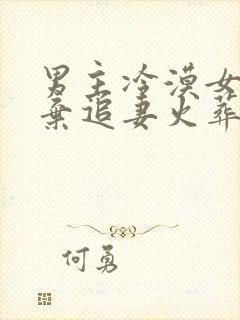 男主冷漠女
弃追妻火葬
何勇